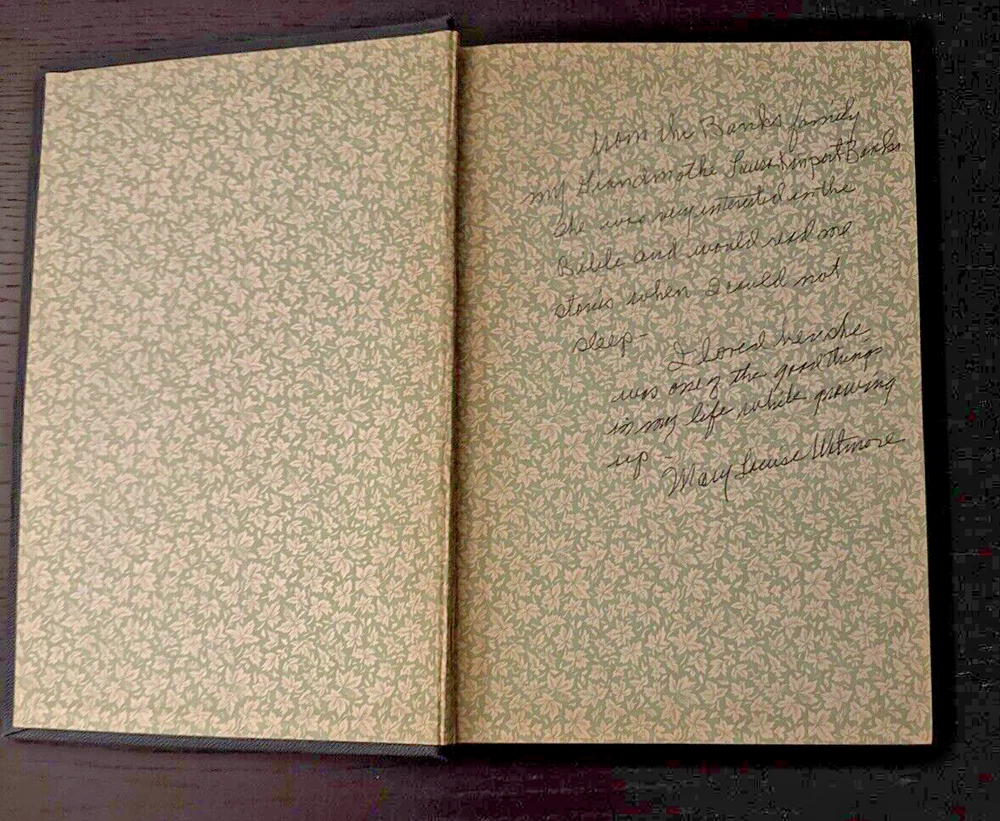 from the Banks family
my Grandmothe Banks
She was very interested in the
Bible and would read me
stories when I could not
sleep -
I loved her she
was one of the good things
in my life while growing
up -
Mary Louise Wetmore